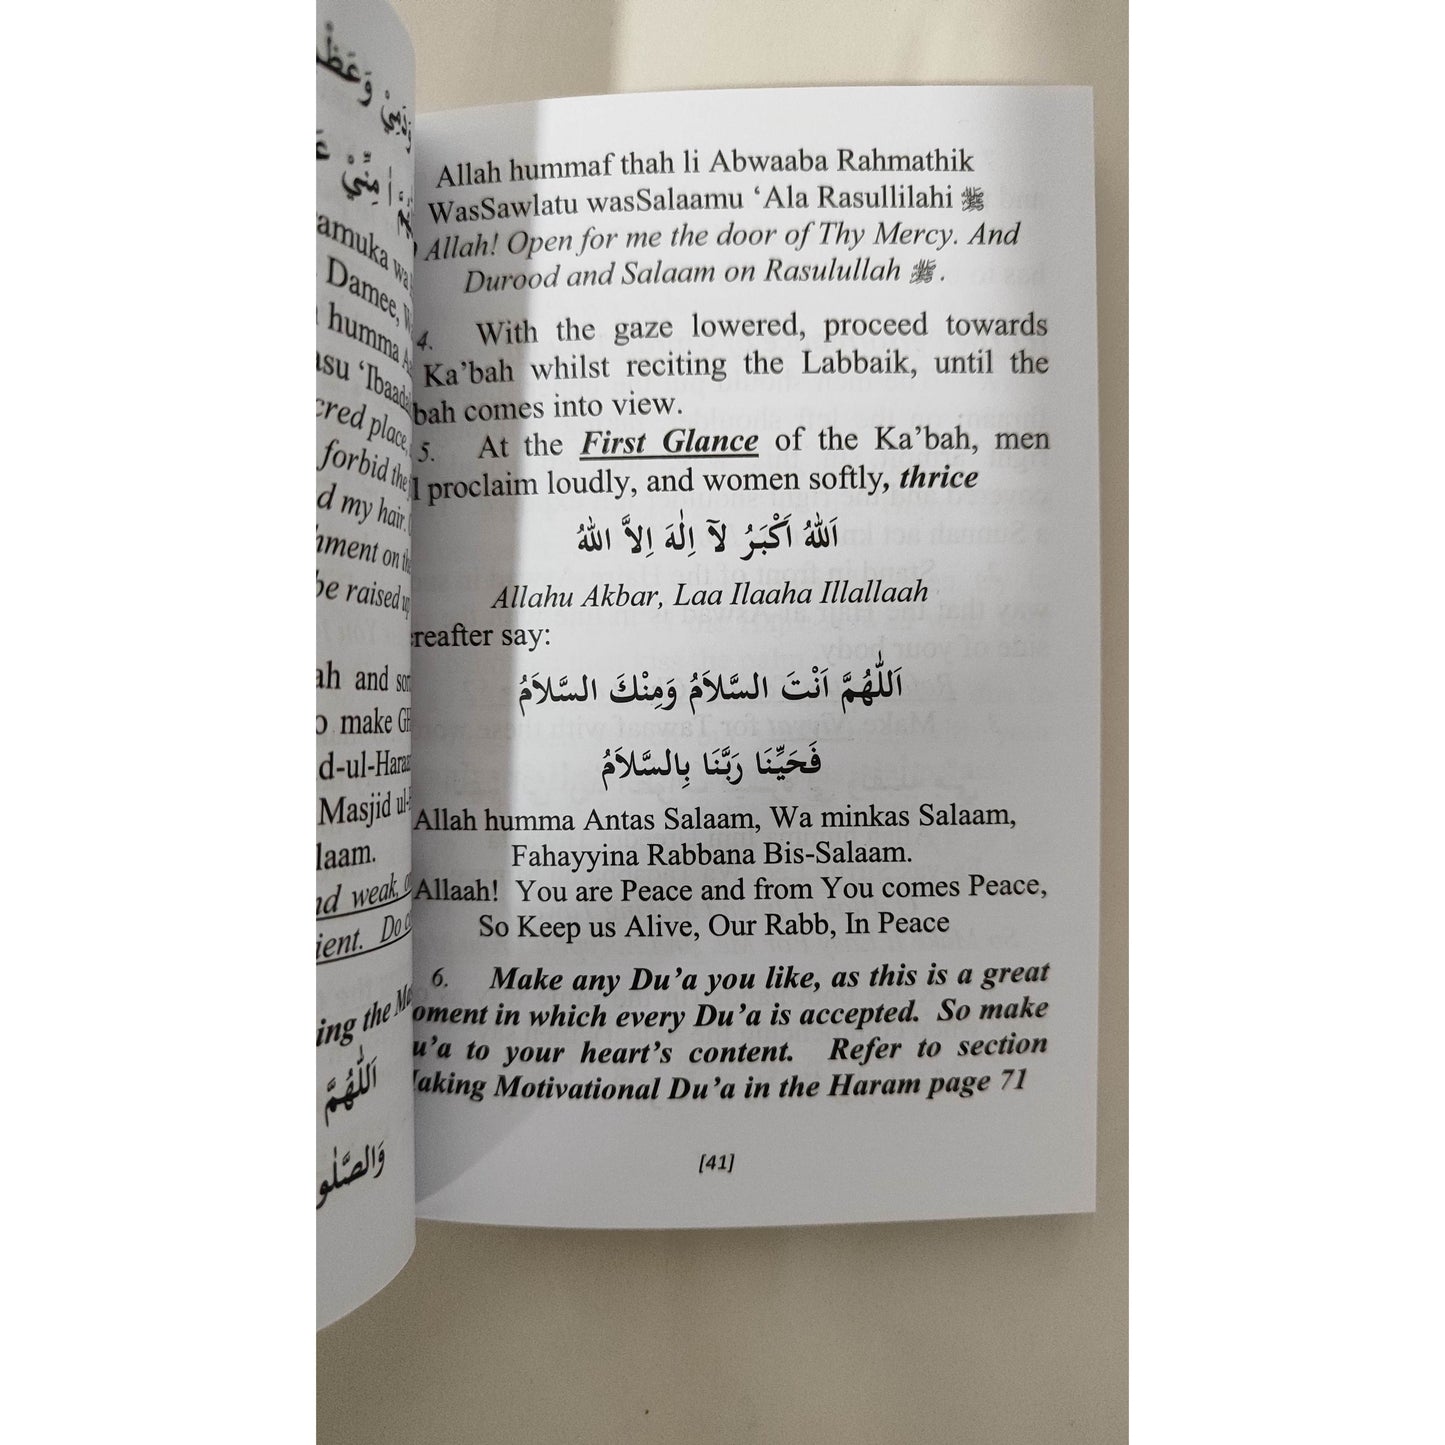 وَعَظْ
وَدَمِيْ
مِنِّيْ
amuka wa
Damee,
humma
su ‘Ibaad
cred place,
forbid the
d my hair.
hment on the
be raised up
ah and som
o make GH
d-ul-Haram
Masjid ul-
laam.
nd weak,
ient. Do
ing the Ma
اَللّٰهُمَّ
وَالصَّلٰو
Allah hummaf thah li Abwaaba Rahmathik
WasSawlatu wasSalaamu ‘Ala Rasullilahi ﷺ
Allah! Open for me the door of Thy Mercy. And
Durood and Salaam on Rasulullah ﷺ .
4. With the gaze lowered, proceed towards
Ka’bah whilst reciting the Labbaik, until the
bah comes into view.
5. At the First Glance of the Ka’bah, men
l proclaim loudly, and women softly, thrice
اَللّٰهُ اَكْبَرُ لَآ اِلٰهَ اِلاَّ اللّٰهُ
Allahu Akbar, Laa Ilaaha Illallaah
reafter say:
اَللّٰهُمَّ اَنْتَ السَّلاَمُ وَمِنْكَ السَّلاَمُ
فَحَيِّنَا رَبَّنَا بِالسَّلاَمُ
Allah humma Antas Salaam, Wa minkas Salaam,
Fahayyina Rabbana Bis-Salaam.
Allaah! You are Peace and from You comes Peace,
So Keep us Alive, Our Rabb, In Peace
6. Make any Du’a you like, as this is a great
oment in which every Du’a is accepted. So make
u’a to your heart’s content. Refer to section
aking Motivational Du’a in the Haram page 71
[41]